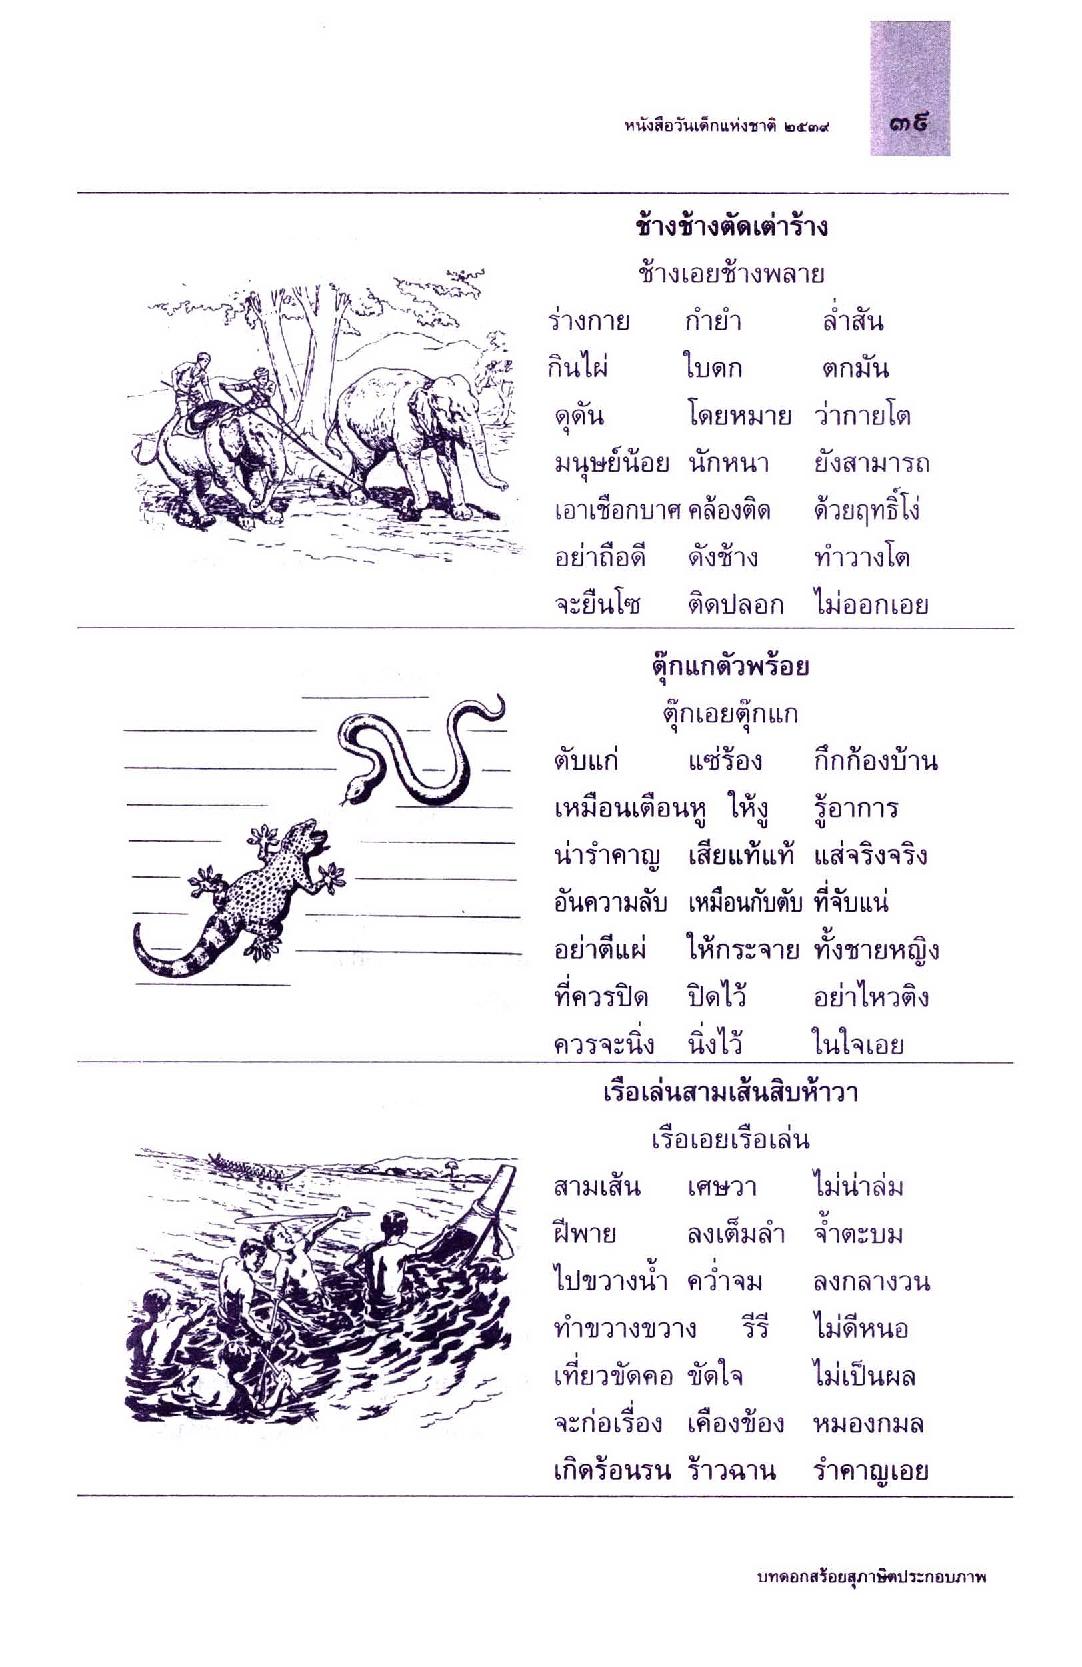 หนังสือวันเด็กแห่งชาติ ๒๕๓๙ ๓๙
ช้างช้างตัดเต่าร้าง
ช้างเอยช้างพลาย
ร่างกาย กำยำ ล่ำสัน
กินไผ่ ใบดก ตกมัน
ดุดัน โดยหมาย ว่ากายโต
มนุษย์น้อย นักหนา ยังสามารถ
เอาเชือกบาศ คล้องติด ด้วยฤทธิ์โง่
อย่าถือดี ดังช้าง ทำวางโต
จะยืนโซ ติดปลอก ไม่ออกเอย
ตุ๊กแกตัวพร้อย
ตุ๊กเอยตุ๊กแก
ตับแก่ แซ่ร้อง กึกก้องบ้าน
เหมือนเตือนหู ให้งู รู้อาการ
น่ารำคาญ เสียแท้แท้ แส่จริงจริง
อันความลับ เหมือนกับตับ ที่จับแน่
อย่าตีแผ่ ให้กระจาย ทั้งชายหญิง
ที่ควรปิด ปิดไว้ อย่าไหวติง
ควรจะนิ่ง นิ่งไว้ ในใจเอย
เรือเล่นสามเส้นสิบห้าวา
เรือเอยเรือเล่น
สามเส้น เศษวา ไม่น่าล่ม
ฝีพาย ลงเต็มลำ จ้ำตะบม
ไปขวางน้ำ คว่ำจม ลงกลางวน
ทำขวางขวาง รีรี ไม่ดีหนอ
เที่ยวขัดคอ ขัดใจ ไม่เป็นผล
จะก่อเรื่อง เคืองข้อง หมองกมล
เกิดร้อนรน ร้าวฉาน รำคาญเอย
บทดอกสร้อยสุภาษิตประกอบภาพ